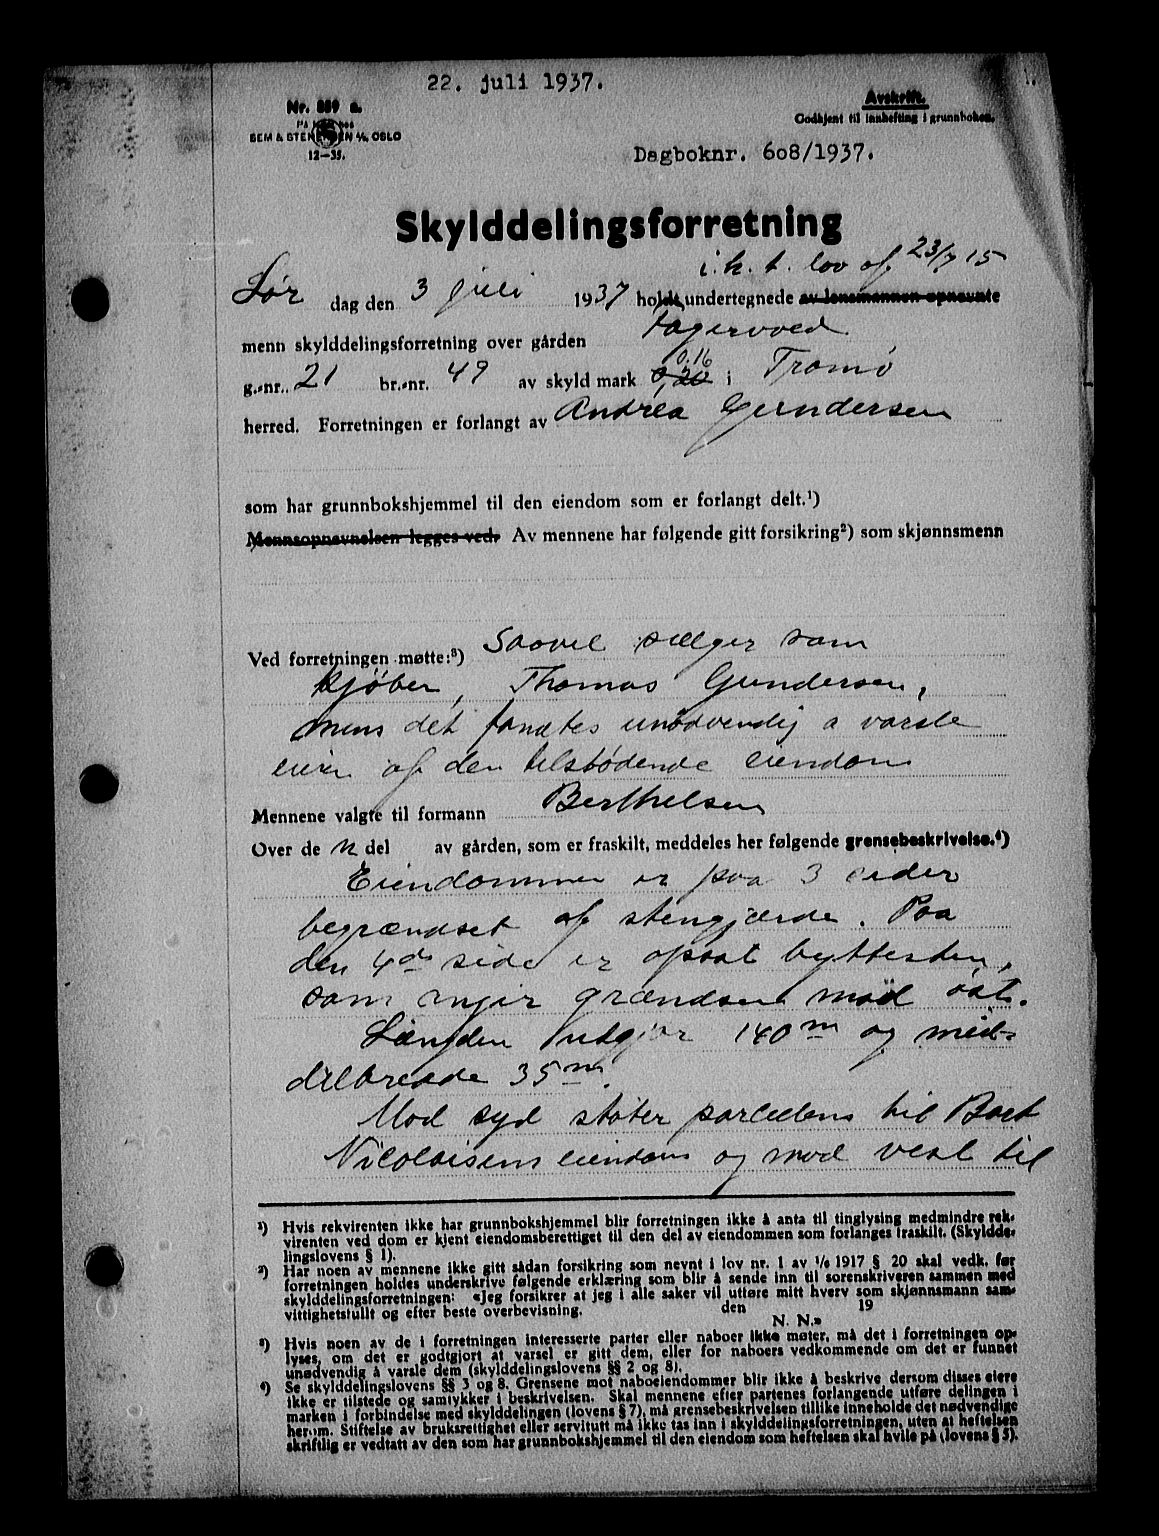 22. juli 1937.
Nr. 889 a.
Avskrift.
Godkjent til innhefting i grunnboken.
SEM & STENERSEN A/S, OSLO
12—35.
Dagboknr. 608/1937.
Skylddelingsforretning
i. h. t. lov af 23/7 15
Lør dag den 3 juli 1937 holdt undertegnede av lensmannen opnevnte
menn skylddelingsforretning over gården Fagervold
g.-nr. 21 br.-nr. 49 av skyld mark 0,20 0.16 i Tromø
herred. Forretningen er forlangt av Andrea Gundersen
som har grunnbokshjemmel til den eiendom som er forlangt delt.¹)
Mennsopnevnelsen legges ved. Av mennene har følgende gitt forsikring²) som skjønnsmenn
Ved forretningen møtte:³) Saavel sælger som
kjøber, Thomas Gundersen,
mens det fandtes unødvendig a varsle
eier af den tilstødende eiendom
Mennene valgte til formann Berthelsen
Over de n del av gården, som er fraskilt, meddeles her følgende grensebeskrivelse.⁴)
Eiendommen er paa 3 sider
begrændset af stengjærde. Paa
den 4de side er opsat byttesten,
som angir grændsen mod øst.
Længden utgjør 140 m og mid-
delbredde 35 m.
Mod syd støter parcellen til Boet
Nicolaisens eiendom og mod vest til
¹) Hvis rekvirenten ikke har grunnbokshjemmel blir forretningen ikke å anta til tinglysing medmindre rek-
virenten ved dom er kjent eiendomsberettiget til den del av eiendommen som forlanges fraskilt. (Skyldde-
lingslovens § 1).
²) Har noen av mennene ikke gitt sådan forsikring som nevnt i lov nr. 1 av 1/6 1917 § 20 skal vedk. før
forretningen holdes underskrive følgende erklæring som blir å sende inn til sorenskriveren sammen med
skylddelingsforretningen: «Jeg forsikrer at jeg i alle saker vil utføre mitt hverv som skjønnsmann sam-
vittighetsfullt og efter beste overbevisning. den 19
N. N.»
³) Hvis noen av de i forretningen interesserte parter eller naboer ikke møter, må det i forretningen op-
lyses, om det er godtgjort at varsel er gitt dem, eller for naboers vedkommende om det er funnet
unødvendig å varsle dem (skylddelingslovens §§ 2 og 8).
⁴) Se skylddelingslovens §§ 3 og 8. Grensene mot naboeiendommer blir ikke å beskrive dersom disses eiere
ikke er tilstede og samtykker i beskrivelsen. Skal mennene efter partenes forlangende utføre delingen i
marken i forbindelse med skylddelingen (lovens § 7), må grensebeskrivelsen tillike inneholde det nødvendige
herom. Stiftelse av bruksrettighet eller servitutt må ikke tas inn i skylddelingsforretningen, uten at heftelsen
skriftlig er vedtatt av den som har grunnbokshjemmel til den eiendom som heftelsen skal hvile på (lovens § 5).